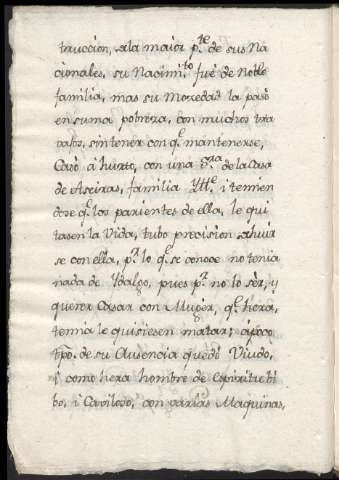 truccion, â la maior p.te de sus Na
cionales, su Nacim.to fué de Noble
familia, mas su Mozedad la pasò
en suma pobreza, con muchos tra
vajos, sin tener con q.e mantenerse,
Casò â hurto, con una S.ra de la Casa
de Aseiras, familia Ylt.e i temien
dose q.e los parientes de ella, le qui
tasen la Vida, tubo precision â huir
se con ella, p.r lo q.e se conoce no tenia
nada de Ydalgo, pues p.r no lo sèr, y
querer Casar con Muger, q.e hera,
temia le quisiesen matar; âpoco
tpo. de su Ausencia quedò Viudo,
i como hera hombre de Espiritu
bo, i Caviloso, con varias Maquinas,